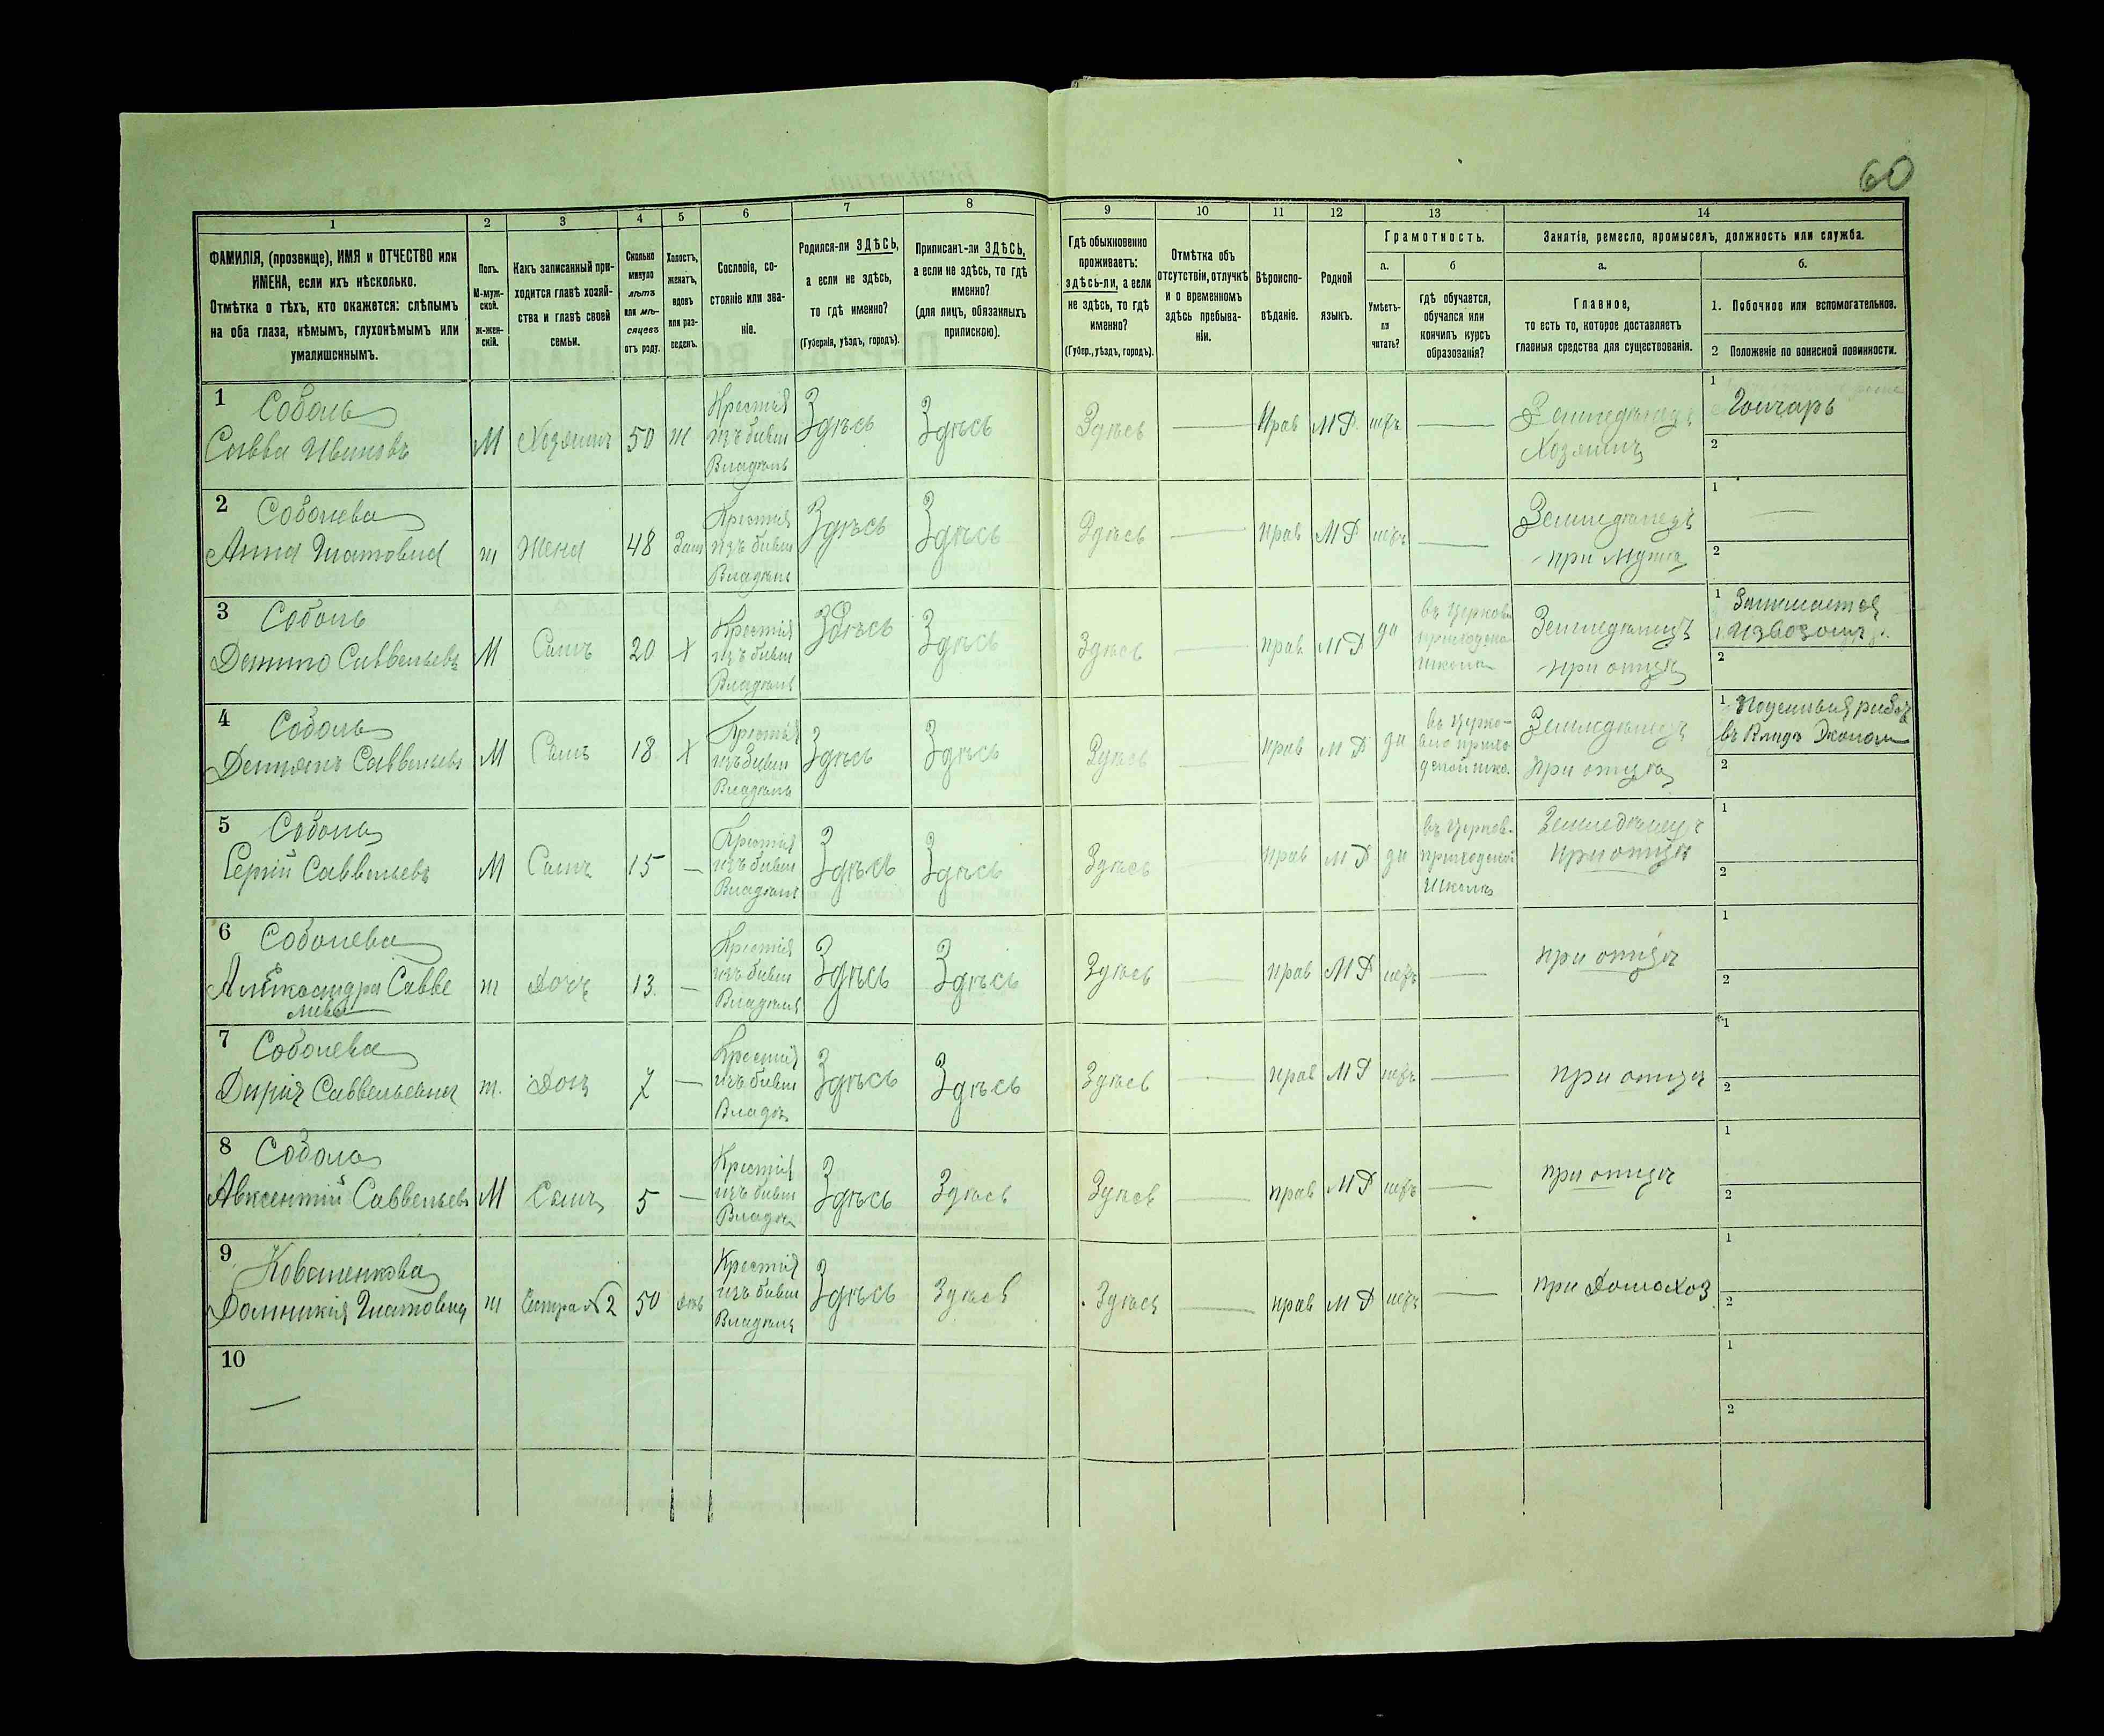 60
1 2 3 4 5 6 7 8 9 10 11 12 13 14
ФАМИЛІЯ, (прозвище), ИМЯ и ОТЧЕСТВО или
ИМЕНА, если ихъ нѣсколько.
Отмѣтка о тѣхъ, кто окажется: слѣпымъ
на оба глаза, нѣмымъ, глухонѣмымъ или
умалишеннымъ.
Полъ.
М-муж-
ской.
ж-жен-
скій.
Какъ записанный при-
ходится главѣ хозяй-
ства и главѣ своей
семьи.
Сколько
минуло
лѣтъ
или мѣ-
сяцевъ
отъ роду.
Холостъ,
женатъ,
вдовъ
или раз-
веденъ.
Сословіе, со-
стояніе или зва-
ніе.
Родился-ли ЗДѢСЬ,
а если не здѣсь,
то гдѣ именно?
(Губернія, уѣздъ, городъ).
Приписанъ-ли ЗДѢСЬ,
а если не здѣсь, то гдѣ
именно?
(для лицъ, обязанныхъ
припискою).
Гдѣ обыкновенно
проживаетъ:
здѣсь-ли, а если
не здѣсь, то гдѣ
именно?
(Губер., уѣздъ, городъ).
Отмѣтка объ
отсутствіи, отлучкѣ
и о временномъ
здѣсь пребыва-
ніи.
Вѣроиспо-
вѣданіе.
Родной
языкъ.
Грамотность.
а.
Умѣетъ-
ли
читать?
б
гдѣ обучается,
обучался или
кончилъ курсъ
образованія?
Занятіе, ремесло, промыселъ, должность или служба.
а.
Главное,
то есть то, которое доставляетъ
главныя средства для существованія.
б.
1. Побочное или вспомогательное.
2 Положеніе по воинской повинности.
1
Соболь
Савва Ивановъ
М
Хозяинъ
50
ж
Крестья
изъ бывш
Владѣль
Здѣсь
Здѣсь
Здѣсь
—
Прав
МР.
нѣтъ
—
Земледѣлецъ
Хозяинъ
1
Гончаръ
2
2
Соболева
Анна Игнатовна
ж
Жена
48
Зам
Крестья
изъ бывш
Владѣль
Здѣсь
Здѣсь
Здѣсь
—
прав
МР
нѣтъ
—
Земледѣлецъ
при мужѣ
1
—
2
3
Соболь
Саввельевъ
М
Сынъ
20
х
Крестья
изъ бывш
Владѣль
Здѣсь
Здѣсь
Здѣсь
—
прав
МР
да
въ церковн
приходско
школѣ
Земледѣлецъ
при отцѣ
1 Занимается
извозомъ
2
4
Соболь
Демьянъ Саввельевъ
М
Сынъ
18
х
Крестья
изъ бывш
Владѣль
Здѣсь
Здѣсь
Здѣсь
—
прав
МР
да
въ церко-
вно прихо
дской шко.
Земледѣлецъ
при отцѣ
1 Поденный рабоч
въ Влад Эконом
2
5
Соболь
Сергій Саввельевъ
М
Сынъ
15
—
Крестья
изъ бывш
Владѣль
Здѣсь
Здѣсь
Здѣсь
—
прав
МР
да
въ церков-
приходской
школѣ
Земледѣлецъ
при отцѣ
1
2
6
Соболева
Александра Савве
льева
ж
Дочь
13.
—
Крестья
изъ бывш
Владѣль
Здѣсь
Здѣсь
Здѣсь
—
прав
МР
нѣтъ
—
при отцѣ
1
2
7
Соболева
Дарія Саввельевна
ж.
Дочь
7
—
Крестья
изъ бывш
Владѣ
Здѣсь
Здѣсь
Здѣсь
—
прав
МР
нѣтъ
—
при отцѣ
1
2
8
Соболь
Авксентій Саввельевъ
М
Сынъ
5
—
Крестья
изъ бывш
Владѣ
Здѣсь
Здѣсь
Здѣсь
—
прав
МР
нѣтъ
—
при отцѣ
1
2
9
Коваленкова
Домникія Игнатовна
ж
Сестра №2
50
Крестья
изъ бывш
Владѣль
Здѣсь
Здѣсь
Здѣсь
—
прав
МР
нѣтъ
—
при Домохоз
1
2
10
—
1
2